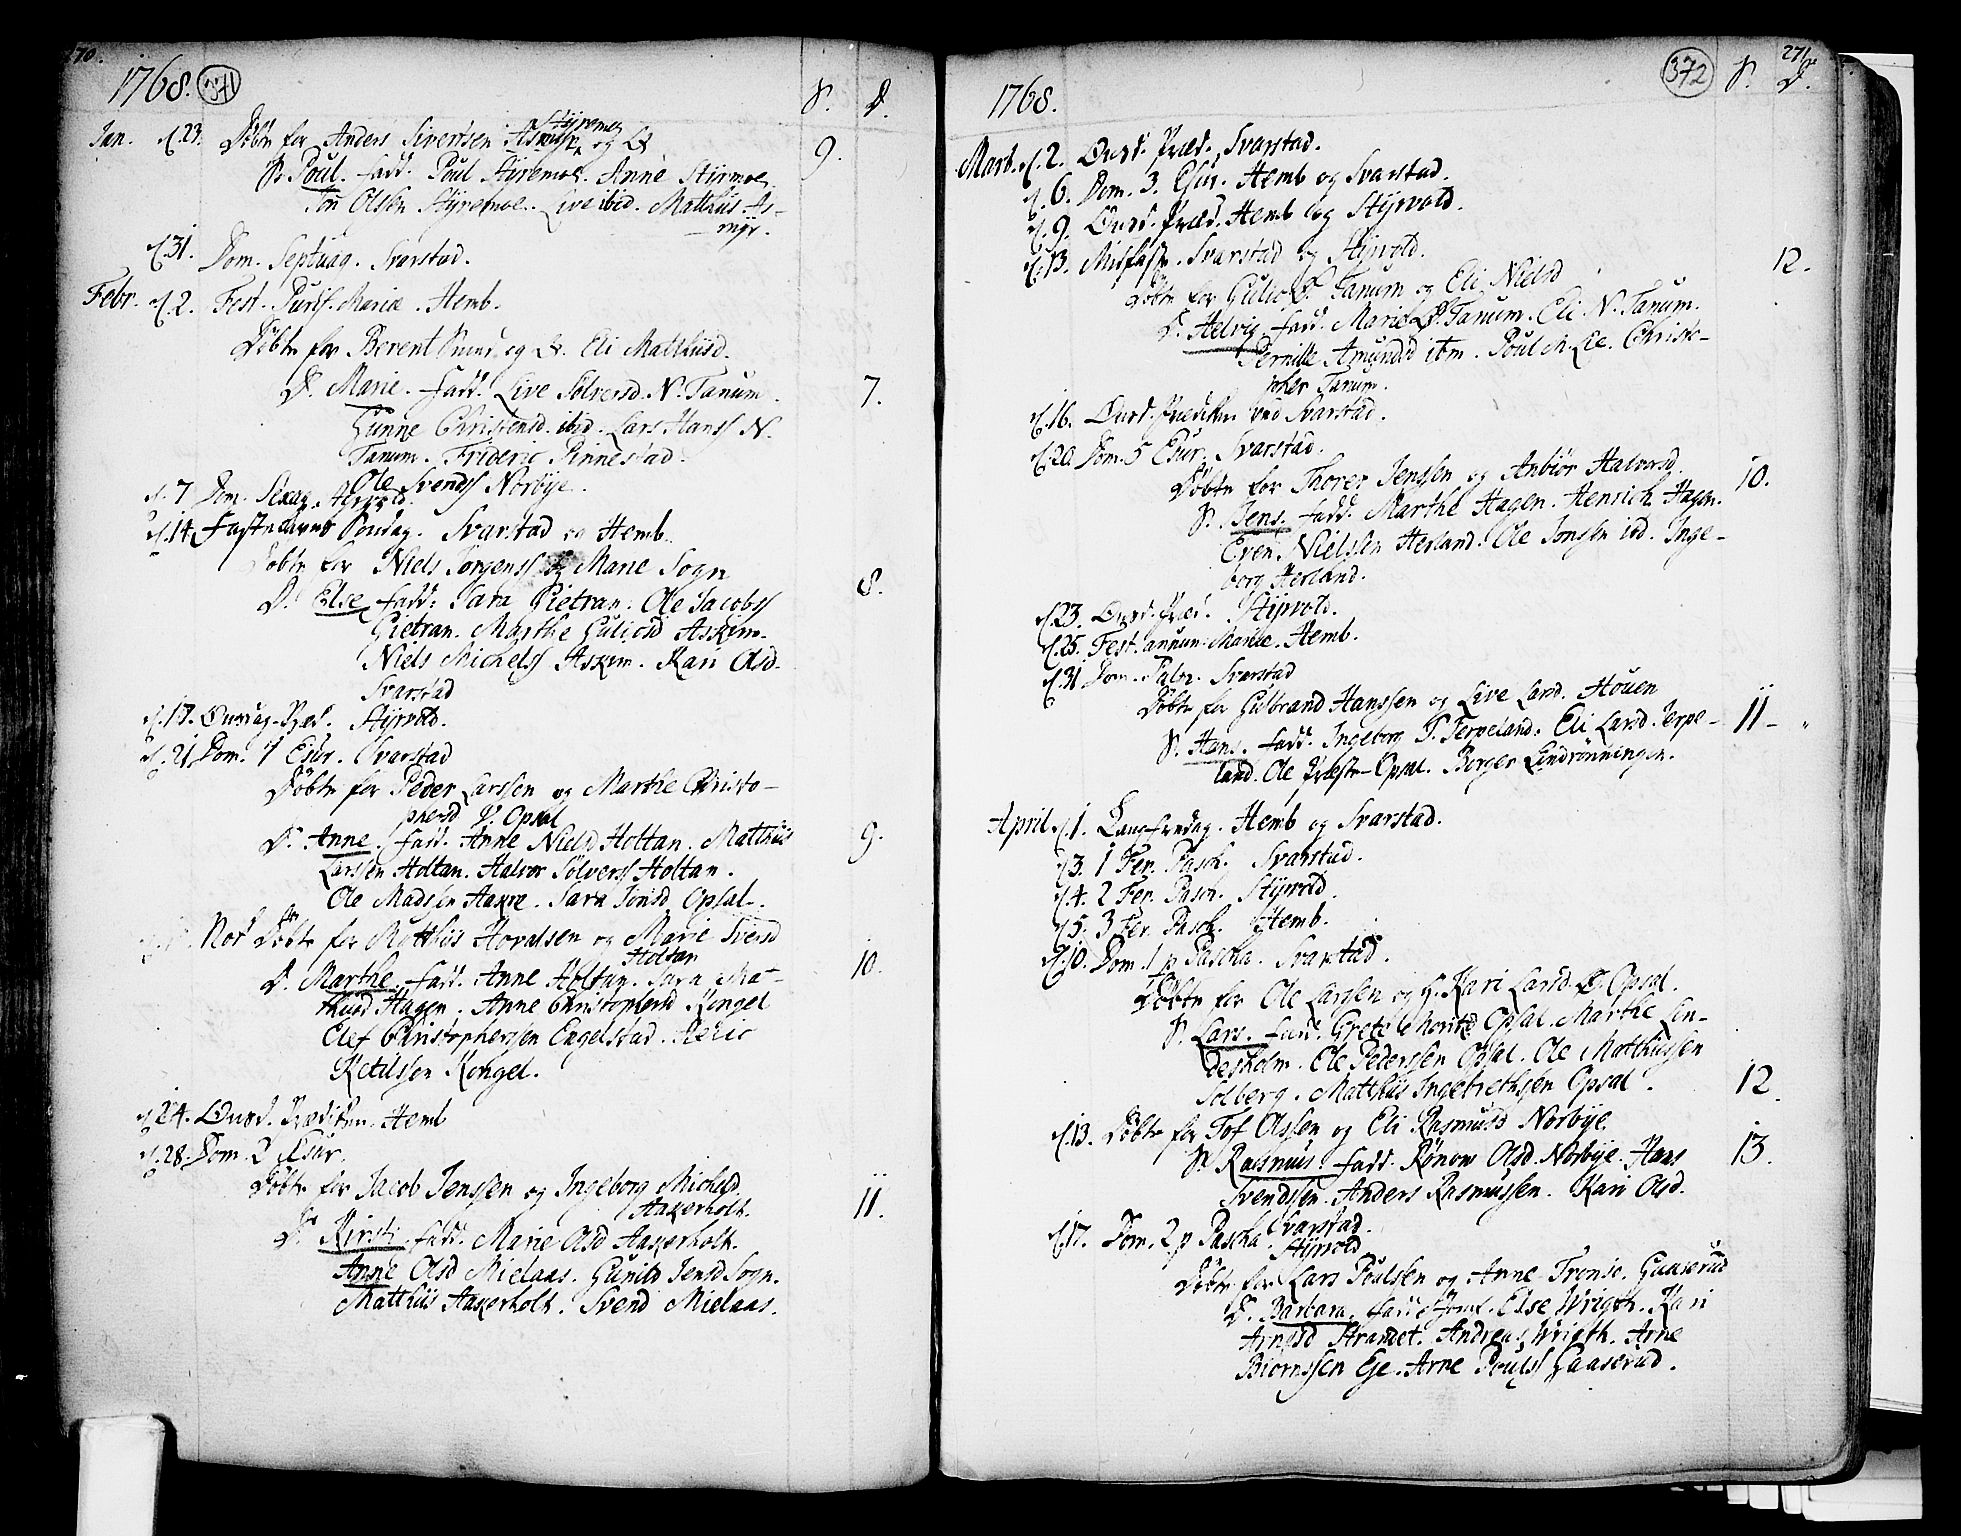 70.
1768. 371 S. D.
Jan. d. 23. Döbte for Anders Sivertsen Styremoe og
S. Poul. Fadd. Poul Styremoe. Anne Styrmoe
Jon Olsen Styremoe. Live ibid. Matthis As-
myr.
d. 31. Dom. Septuag. Svarstad.
Febr. d. 2. Fest. Purif. Mariæ. Hemb.
Döbte for Berent og Eli Matthisd.
D. Marie. Fadd. Live Sölversd. N. Tanum.
Gunne Christensd. ibid. Lars Hanss N.
Tanum. Frideric Rinnestad.
Ole Svends Norbye.
d. 7 Dom. Sexag. Styrvold.
d. 14. Fastelavns Söndag. Svarstad og Hemb.
Döbte for Niels Jörgenss og Marie Sogn
D. Else Fadd: Sara Gietran. Ole Jacobss
Gietran. Marthe Guliosd Askim.
Niels Michelss Askim. Kari Olsd.
Svarstad
d. 17. Onsdag-Præd. Styrvold.
d. 21 Dom. 1 Esur. Svarstad
Döbte for Peder Larssen og Marthe Christo-
phersd V. Opsal
D. Anne. Fadd. Anne Nielsd Holtan. Matthis
Larssen Holtan. Halvor Sölverss Holtan.
Ole Madssen Haxre. Sara Jonsd Opsal.
Nok Döbte for Matthis Hovalsen og Marie Svensd
Holtan
D. Marthe. Fadd. Anne Holtan. Sara Ma-
thisd Hagen. Anne Christophersd Kongel
Elef Christopherssen Engelstad.
Ketilssen Kongel.
d. 24. Onsd. Prædiken. Hemb
d. 28. Dom. 2 Esur.
Döbte for Jacob Jenssen og Ingeborg Michelsd
Aakerholt.
D. Kirsti. Fadd. Marie Olsd Aakerholt.
Anne Olsd Mielaas. Gunild Jensd Sogn.
Matthis Aakerholt. Svend Mielaas.
9.
7.
8.
9.
10.
11.
1768. 372 S. 271 D.
Mart. d. 2. Onsd. Præd. Svarstad.
d. 6. Dom. 3. Esur. Hemb og Svarstad.
d. 9. Onsd. Præd. Hemb og Styrvold.
d. 13. Midfaste. Svarstad og Styrvold.
Döbte for Gulio S. Tanum og Eli Nielsd
D. Helvig. Fadd. Marie S. Tanum. Eli N. Tanum.
Pernille Amundsd ibm. Poul M. Lie. Christo-
pher Tanum.
12.
d. 16. Onsd. Prædiken ved Svarstad.
d. 20. Dom. 5 Esur. Svarstad.
Döbte for Thorer Jenssen og Anbiör Halvorsd.
S. Jens. Fadd. Marthe Hagen. Henrich Hagen.
Even Nielssen Herland. Ole Jonsen ibd. Inge-
borg Herland.
10.
d. 23. Onsd. Præd. Styrvold.
d. 25. Fest. annun. Mariæ. Hemb.
d. 31 Dom. Palm. Svarstad
Döbte for Gulbrand Hanssen og Live Larsd. Houen
S. Hans. Fadd. Ingeborg T. Terpeland. Eli Larsd. Terpe-
land. Ole Præste-Opsal. Borger Lindrönningen.
11-
April d. 1. Langfredag. Hemb og Svarstad.
d 3. 1 Fer. Pasch. Svarstad.
d. 4. 2 Fer. Pasch. Styrvold.
d. 5. 3 Fer. Pasch. Hemb.
d. 10. Dom. 1 p Pascha. Svarstad.
Döbte for Ole Larssen og H. Kari Larsd. Opsal.
S. Lars. Fadd. Grete Moritzd Opsal. Marthe Lin-
desholm. Ole Pederssen Opsal. Ole Matthissen
Solberg. Matthis Ingebrethsen Opsal.
12.
d. 13. Döbte for Tof Olssen og Eli Rasmusd Norbye.
S. Rasmus. Fadd. Rönow Olsd. Norbye. Hans
Svendssen. Anders Rasmussen. Kari Olsd.
13.
d. 17. Dom. 2 p Pascha. Svarstad.
Styrvold
Döbte for Lars Poulsen og Anne Tronsd. Gaaserud
D. Barbara. Fadd. Jomf. Else Wrigth. Kari
Arnesd Strandet. Andreas Wrigth. Arne
Biörnssen Eje. Arne Poulss Gaaserud.